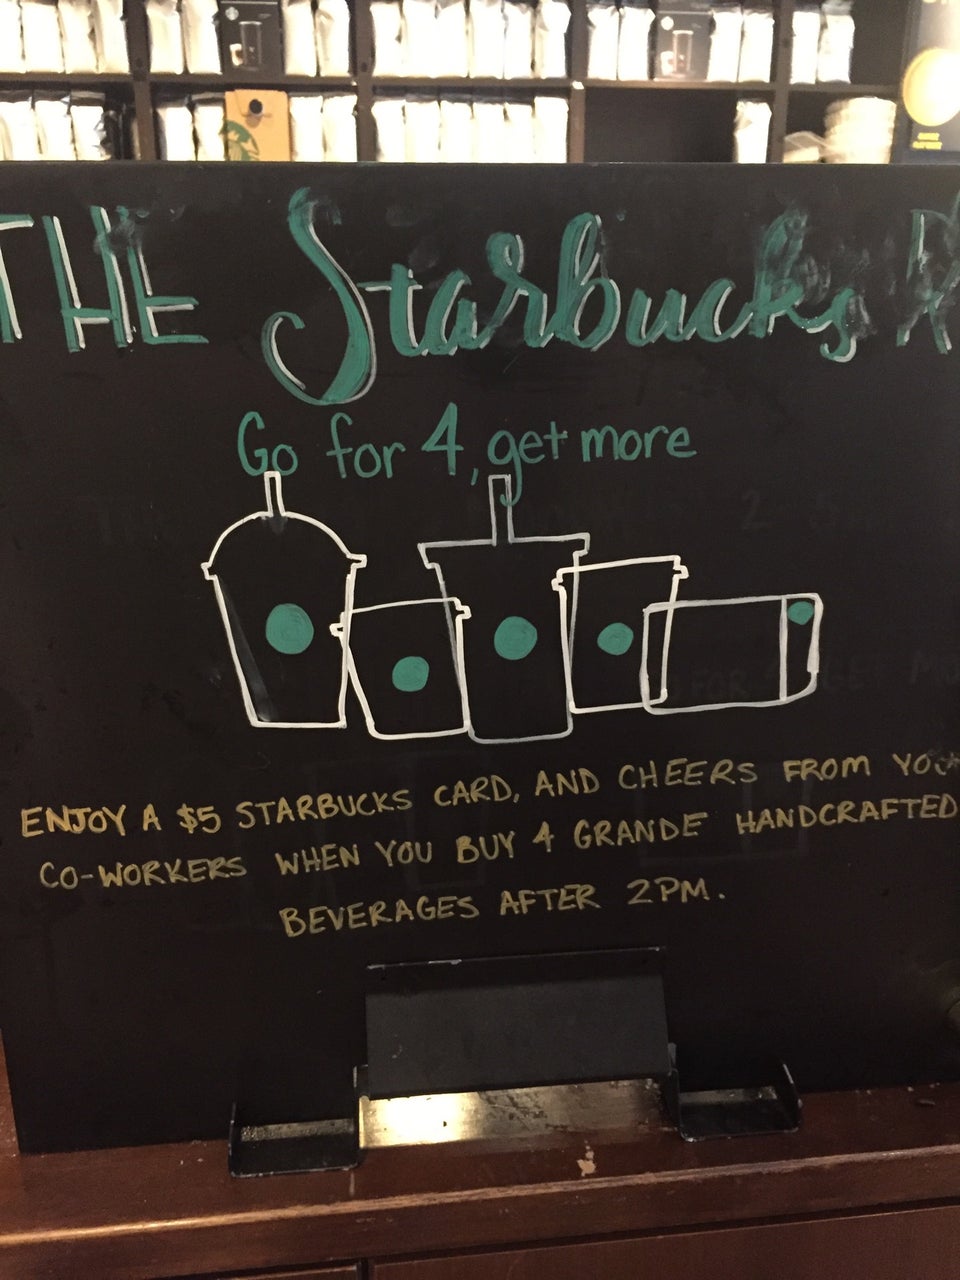 THE Starbucks R
Go for 4, get more
ENJOY A $5 STARBUCKS CARD, AND CHEERS FROM YOUR
CO-WORKERS WHEN YOU BUY 4 GRANDE HANDCRAFTED
BEVERAGES AFTER 2PM.